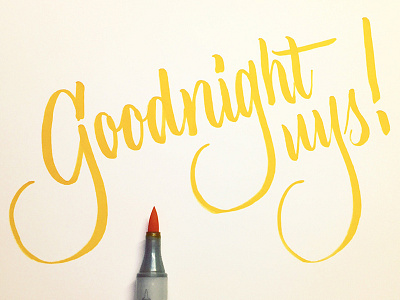 Goodnight
uys!